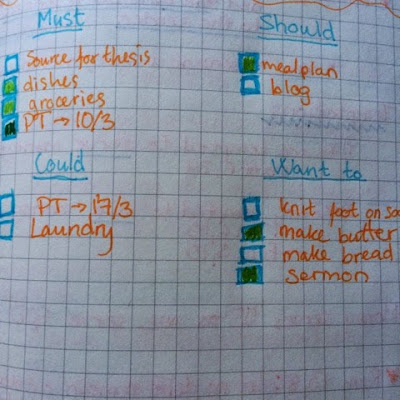 Must
Source for thesis
dishes
groceries
PT → 10/3
Should
mealplan
blog
Could
PT → 17/3
Laundry
Want to
knit foot on
make butter
make bread
sermon